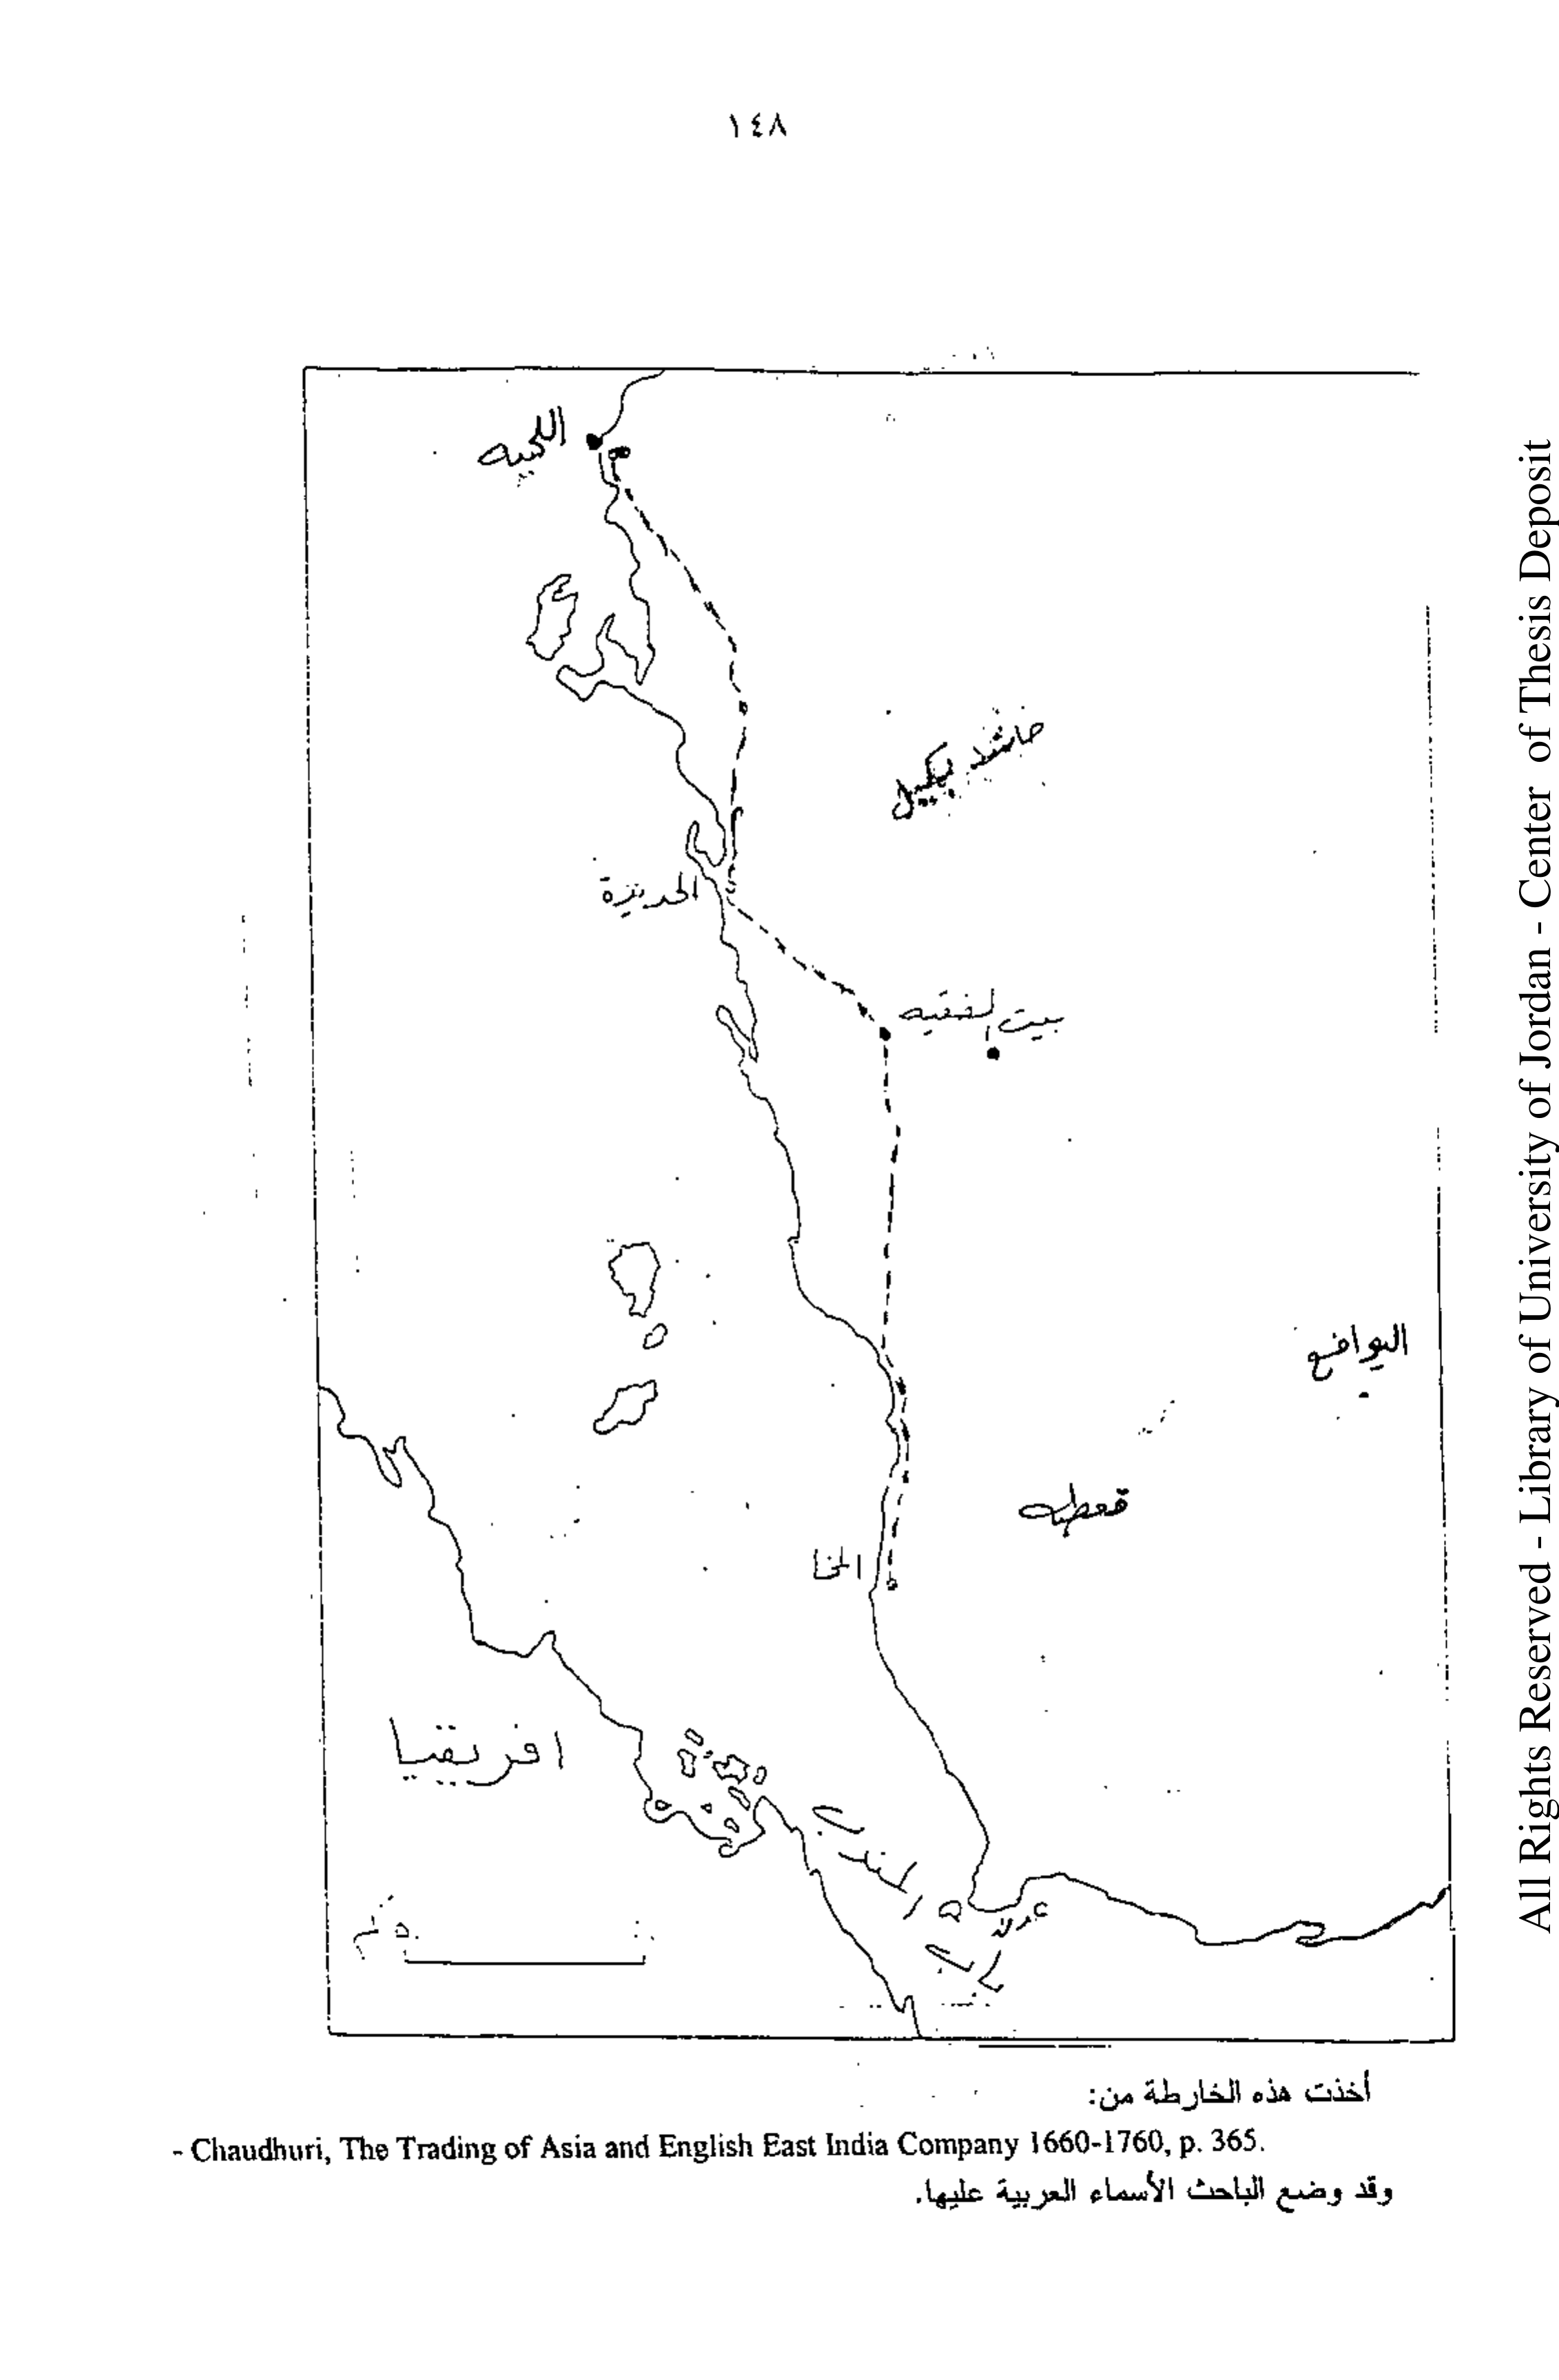 ١٤٨
اللحيه
حاشد بكيل
الحديدة
بيت الفقيه
اليوافع
قعطبه
المخا
افريقيا
المندب
عدن
أخذت هذه الخارطة من:
- Chaudhuri, The Trading of Asia and English East India Company 1660-1760, p. 365.
وقد وضع الباحث الأسماء العربية عليها.
All Rights Reserved - Library of University of Jordan - Center of Thesis Deposit